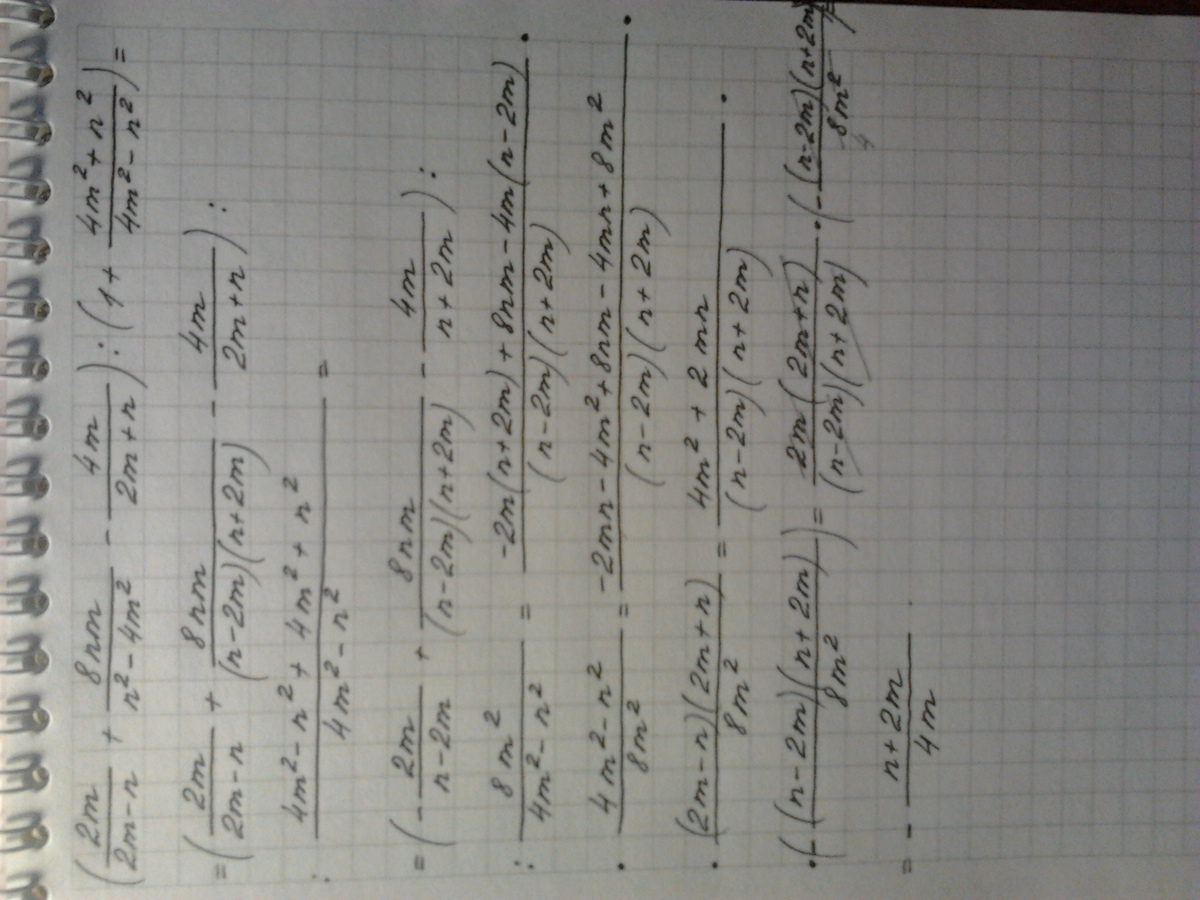 (2m/(2m-n) + 8nm/(n²-4m²) - 4m/(2m+n)) : (1 + (4m²+n²)/(4m²-n²)) =
= (2m/(2m-n) + 8nm/((n-2m)(n+2m)) - 4m/(2m+n)) :
: (4m²-n²+4m²+n²)/(4m²-n²) =
= (- 2m/(n-2m) + 8nm/((n-2m)(n+2m)) - 4m/(n+2m)) :
: 8m²/(4m²-n²) = (-2m(n+2m)+8nm-4m(n-2m))/((n-2m)(n+2m)) ·
· (4m²-n²)/8m² = (-2mn-4m²+8nm-4mn+8m²)/((n-2m)(n+2m)) ·
· (2m-n)(2m+n)/8m² = (4m²+2mn)/((n-2m)(n+2m)) ·
· (- (n-2m)(n+2m)/8m²) = 2m(2m+n)/((n-2m)(n+2m)) · (- (n-2m)(n+2m)/8m²) =
= - (n+2m)/4m